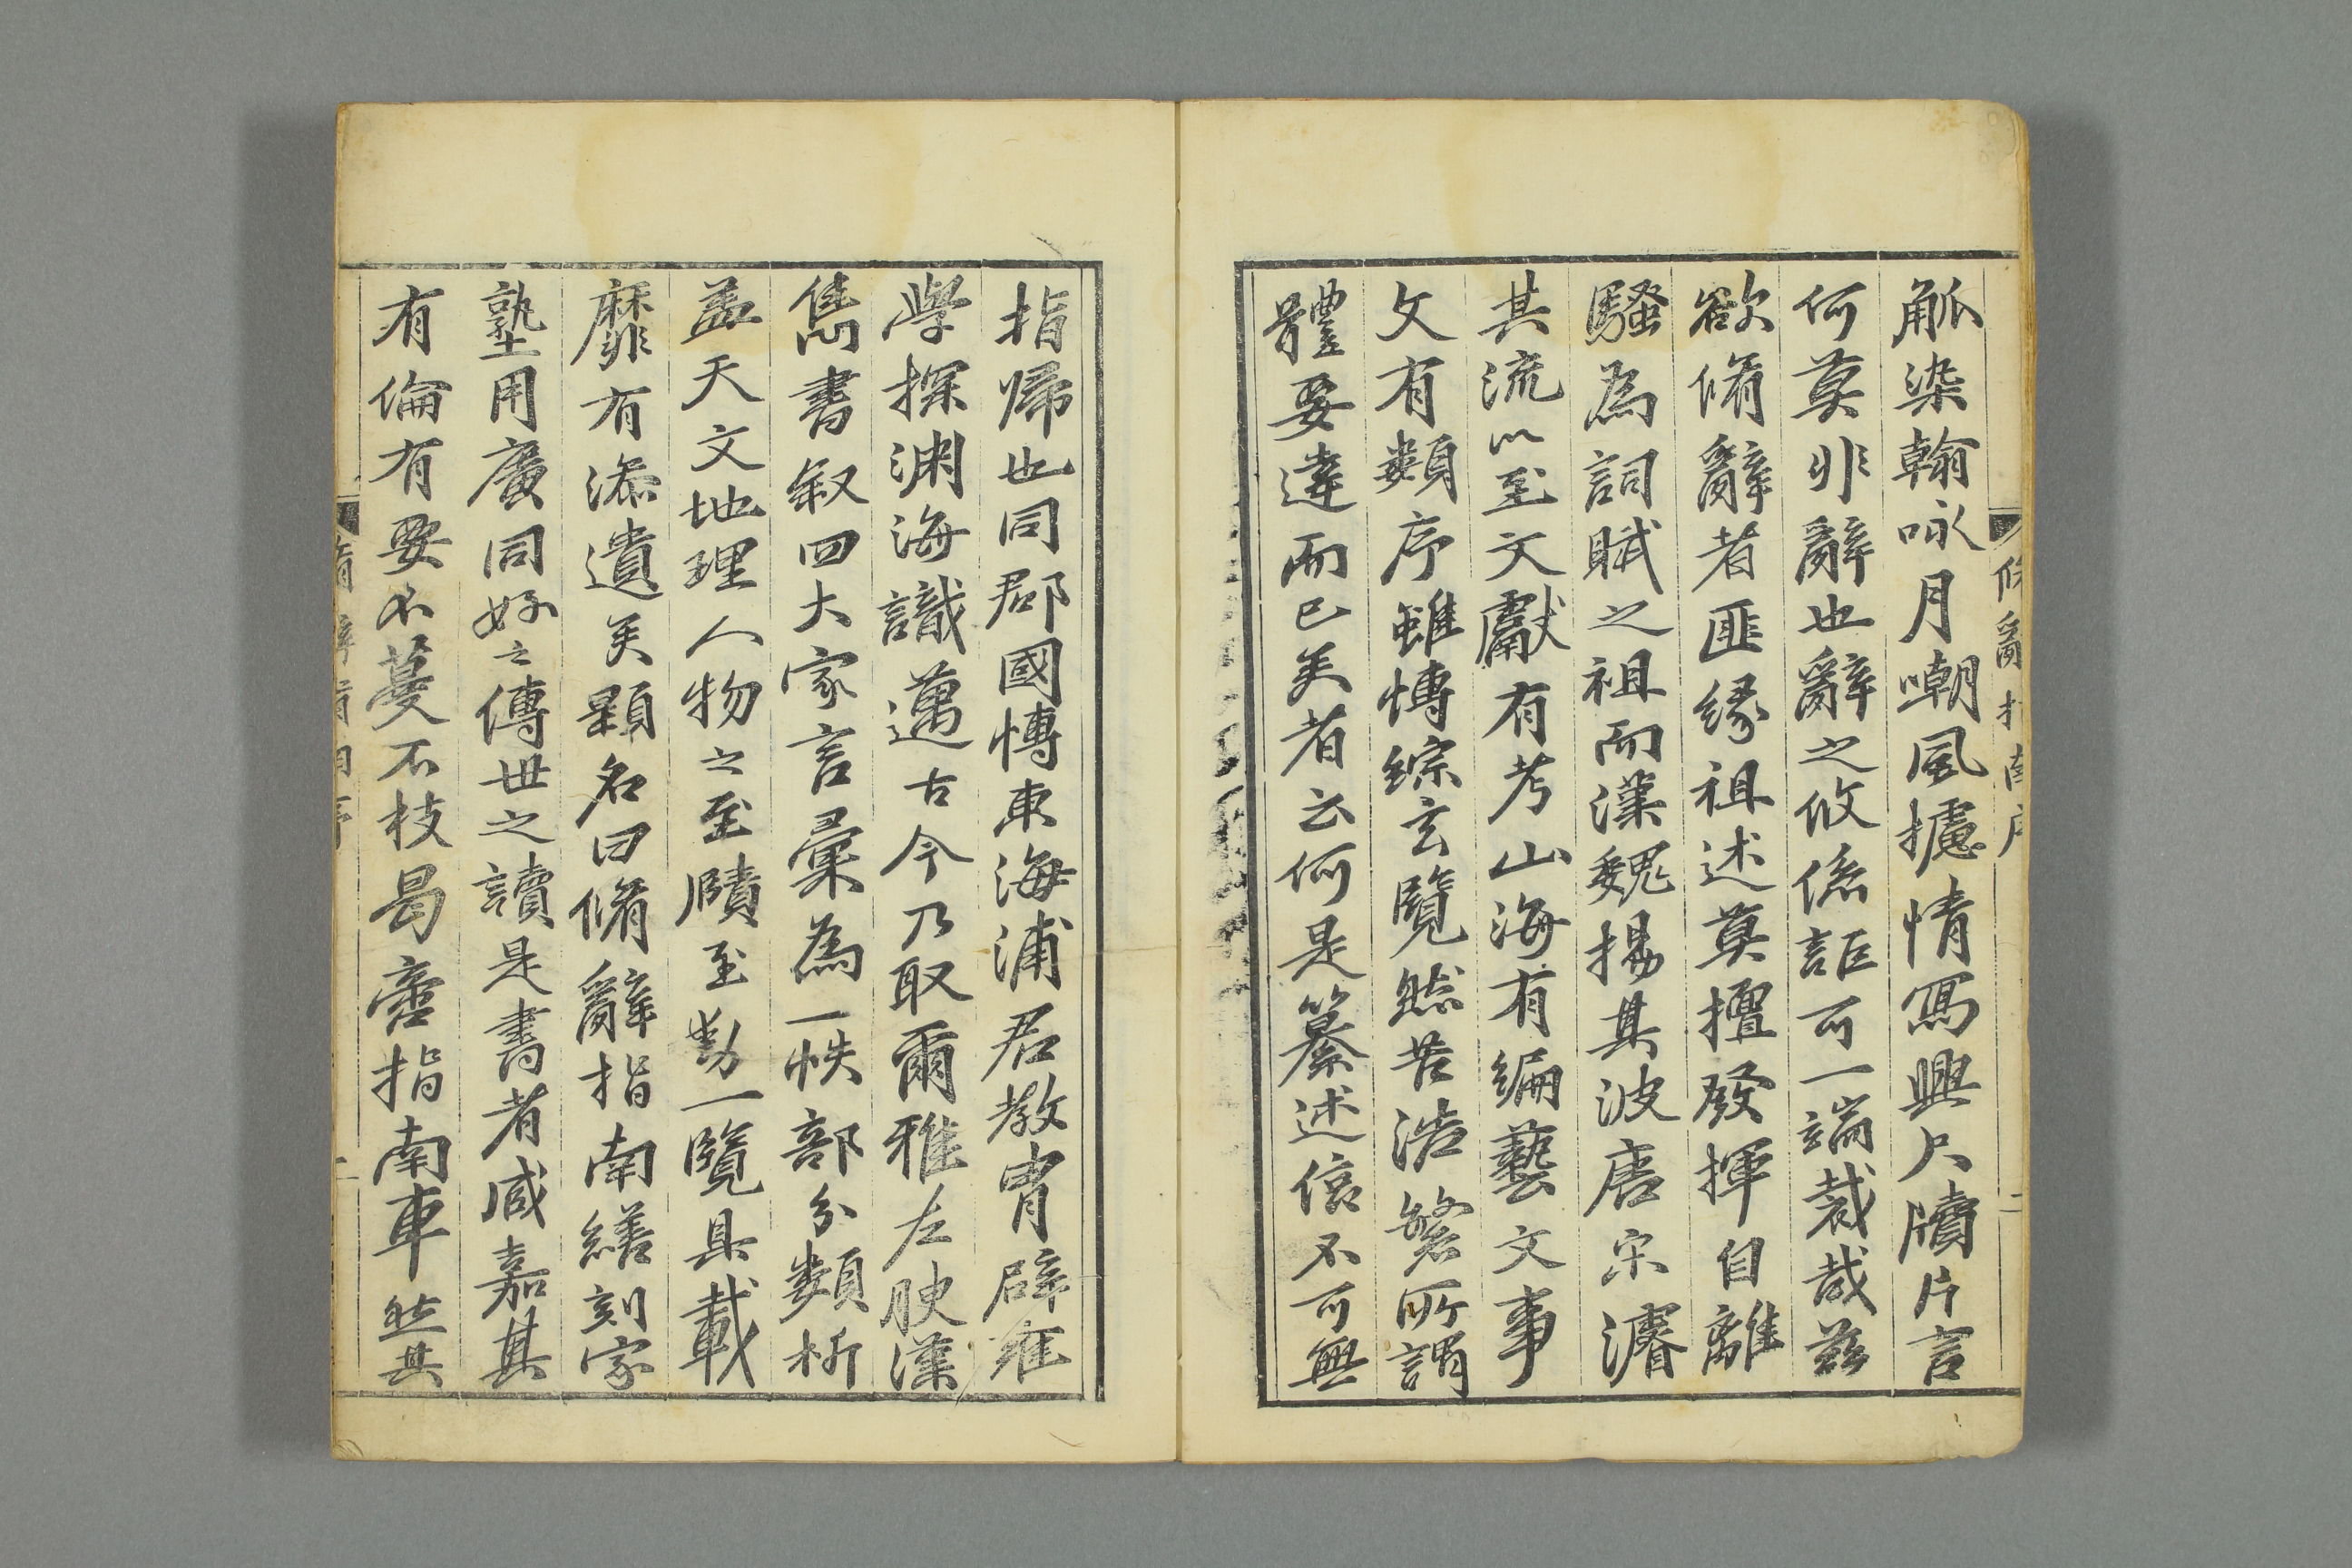 脩辭指南序
二
觚染翰咏月嘲風攄情寫興尺牘片言
何莫非辭也辭之攸係詎可一端裁哉茲
欲脩辭者匪緣祖述莫擅發揮自離
騷為詞賦之祖而漢魏揚其波唐宋濬
其流以至文獻有考山海有編藝文事
文有類序雖博綜玄覽然苦浩繁所謂
體要達而已矣者云何是纂述信不可無
指歸也同郡國博東海浦君教胄辟雍
學探淵海識邁古今乃取爾雅左腴漢
雋書叙四大家言彙為一帙部分類析
盖天文地理人物之至賾至動一覽具載
靡有漆遺矣顯名曰脩辭指南繕刻家
塾用廣同好之傳世之讀是書者咸嘉其
有倫有要不蔓不枝曷啻指南車然其
脩辭指南序
二